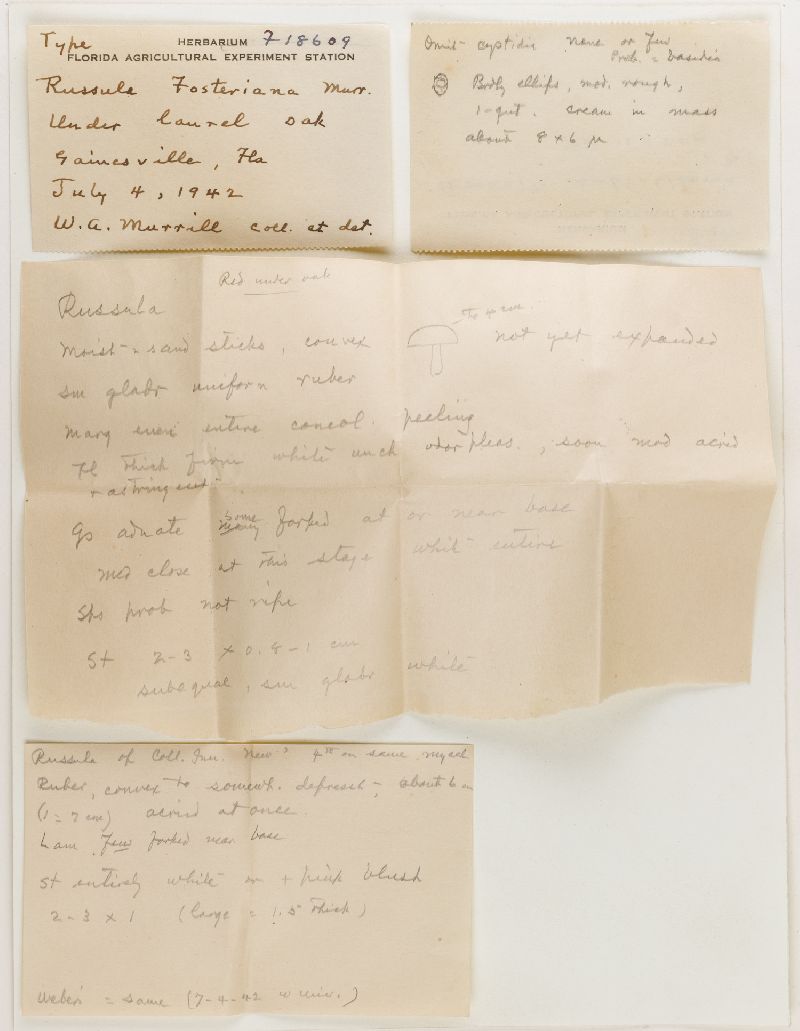 Type HERBARIUM F18609
FLORIDA AGRICULTURAL EXPERIMENT STATION
Russula Fosteriana Murr.
Under laurel oak
Gainesville, Fla
July 4, 1942
W.A. Murrill coll. et det.
Omit cystidia none or few
Prob. = basidia
Brdly ellips, mod. rough,
1-gut. cream in mass
about 8 x 6 µ
Red under oak
Russula
Moist = sand sticks, convex
to 4 cm.
not yet expanded
sm glabr uniform ruber
marg even entire concol. peeling
Fl thick firm white unch odor pleas., soon mod acrid
+ astringent
Gs adnate some many forked at or near base
med close at this stage white entire
Sps prob not ripe
St 2-3 x 0.8-1 cm
subequal, sm glabr white
Russula of Coll. New? 4 on same mycel
Ruber, convex to somewh. depress-, about 6 cm
(1 = 7 cm) acrid at once.
Lam few forked near base
St entirely white or + pink blush
2-3 x 1 (large = 1.5 thick)
Weber's = same (7-4-42 )